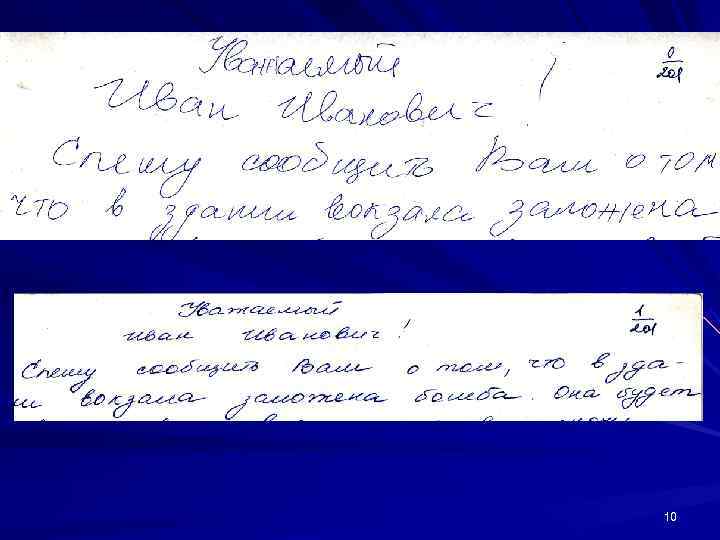 Уважаемый
0
201
Иван Иванович!
Спешу сообщить Вам о том
что в здании вокзала заложена
Уважаемый
1
201
Иван Иванович!
Спешу сообщить Вам о том, что в зда-
ии вокзала заложена бомба. Она будет
10